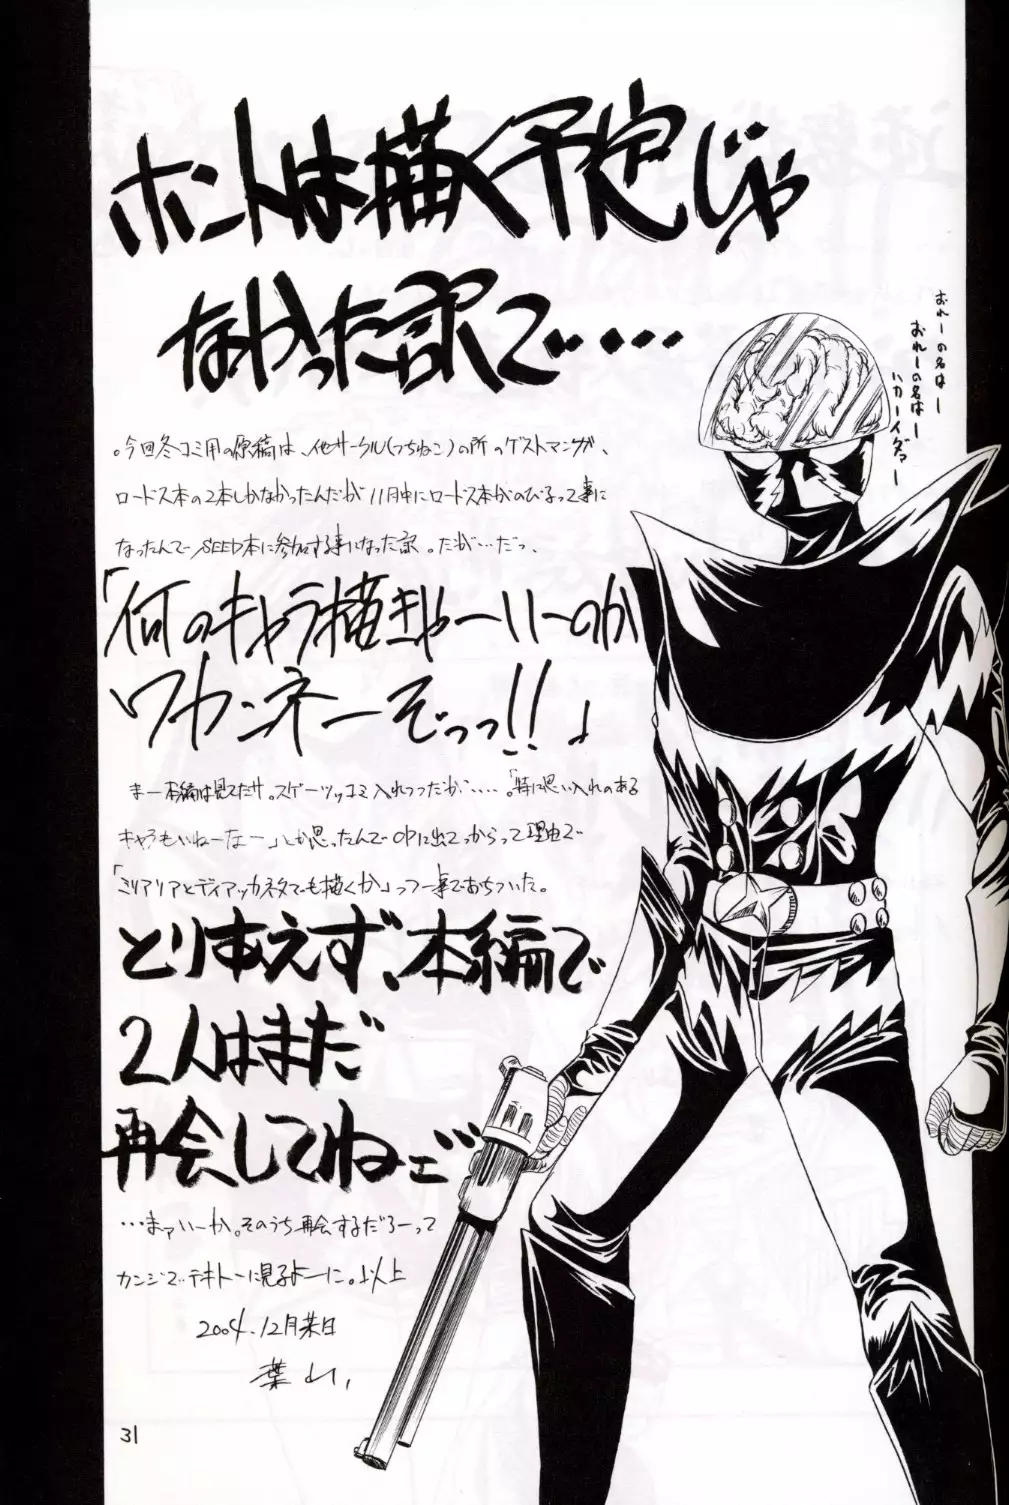 ホントは描く予定じゃ
なかった訳で・・・・
おれーの名はー
おれーの名はー
ハカーイダァー
。今回冬コミ用の原稿は、他サークル(つちねこ)の所のゲストマンガ、
ロードス本の2本しかなかったんだが11月中にロードス本がのびるって事に
なったんでSEED本に参加する事になった訳。だが…だっ、
「何のキャラ描きゃーいーのか
ワカンネーぞっっ!!」
まー本編は見てたサ。スゲーツッコミ入れつつだが・・・・。「特に思い入れのある
キャラもいねーなー」とか思ったんでOPに出てっからって理由で
「ミリアリアとディアッカネタでも描くか」って事でおちついた。
とりあえず、本編で
2人はまだ
再会してねェ…
…まァいーか。そのうち再会するだろーって
カンジでテキトーに見るよーに。以上
2004.12月某日
葉山
31